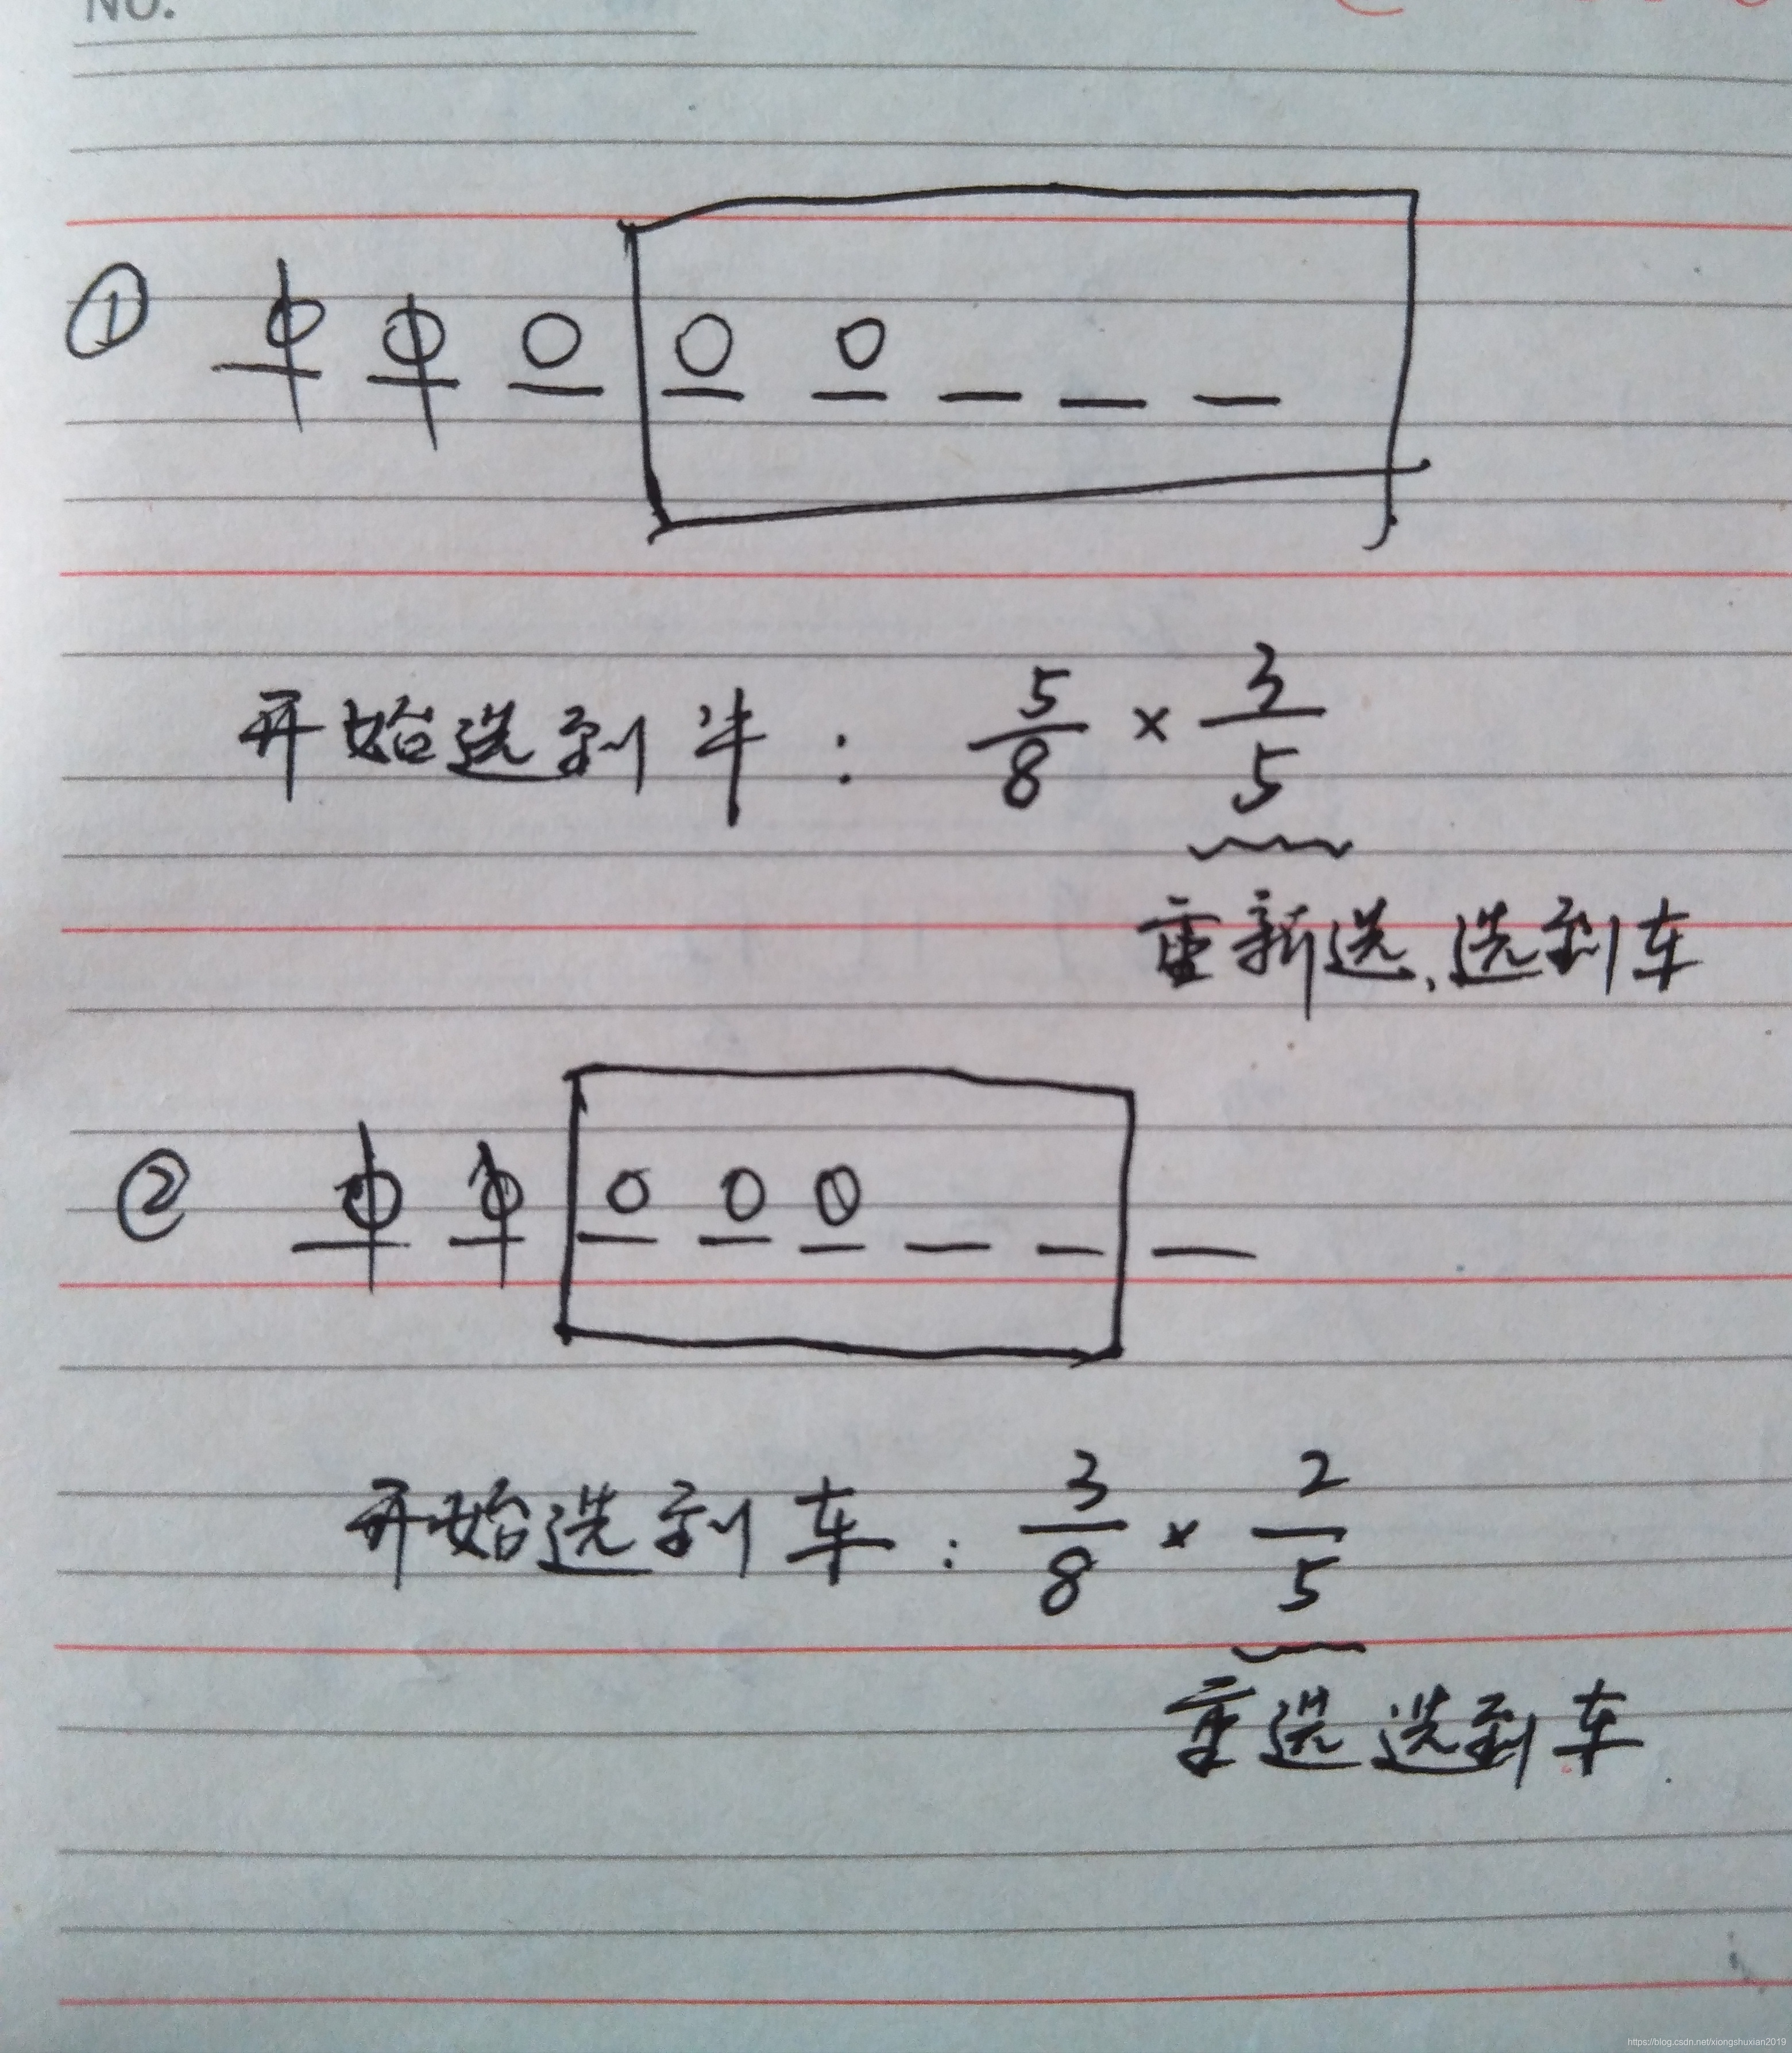 NO.
①
开始选到牛: 5/8 × 3/5
重新选,选到车
②
开始选到车: 3/8 × 2/5
重选选到车
https://blog.csdn.net/xiongshuxian2019